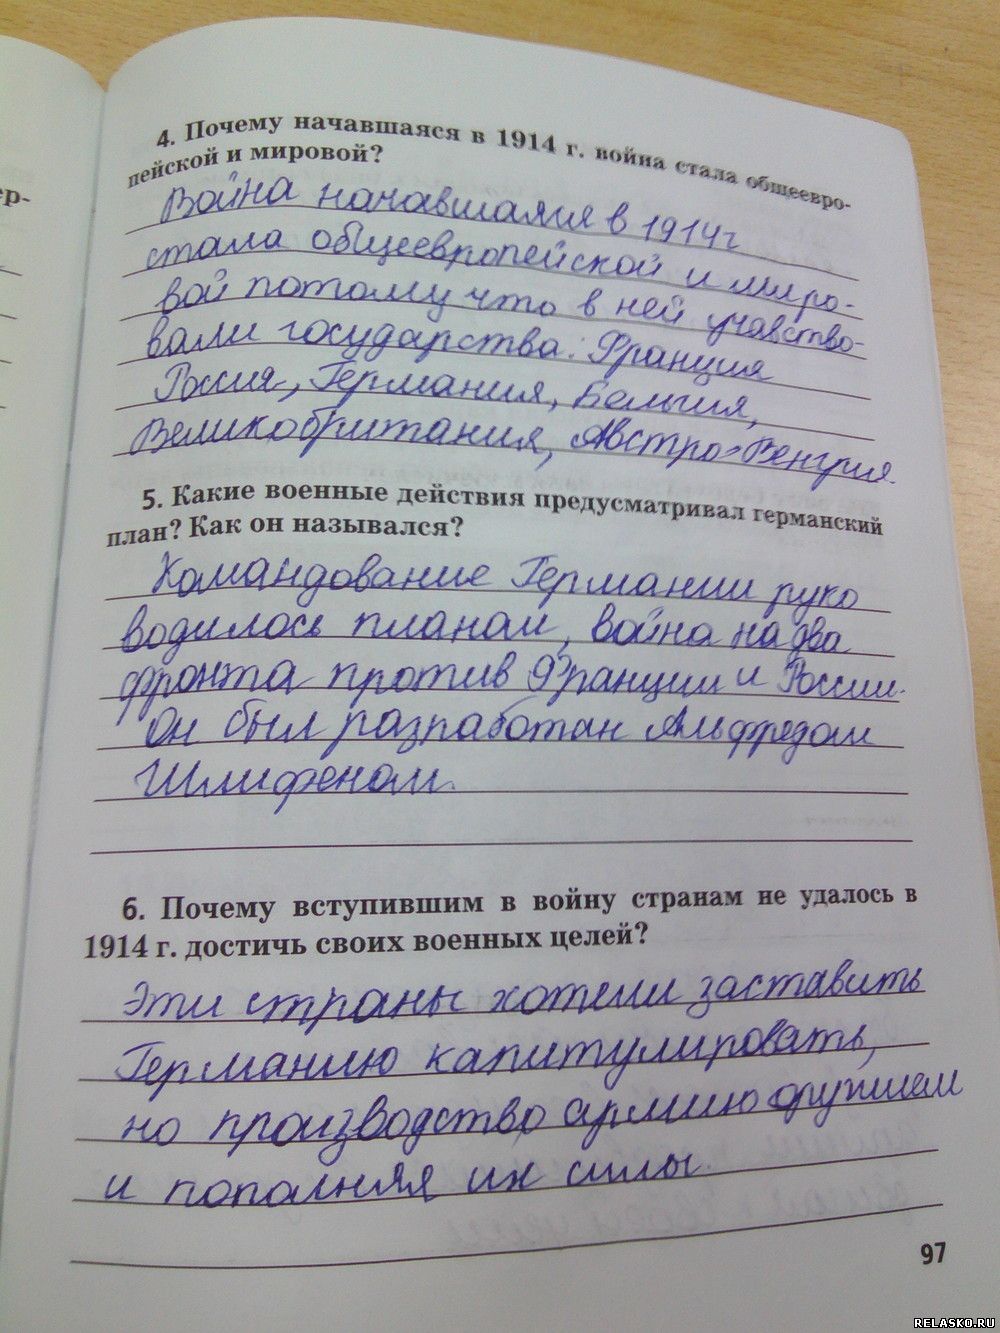 ер-
4. Почему начавшаяся в 1914 г. война стала общеевро-
пейской и мировой?
Война начавшаяся в 1914 г
стала общеевропейской и миро-
вой потому что в ней учавство-
вали государства: Франция
Россия, Германия, Бельгия,
Великобритания, Австро-Венгрия.
5. Какие военные действия предусматривал германский
план? Как он назывался?
Командование Германии руко
водилось планом, война на два
фронта против Франции и России.
Он был разработан Альфредом
Шлифеном.
6. Почему вступившим в войну странам не удалось в
1914 г. достичь своих военных целей?
Эти страны хотели заставить
Германию капитулировать,
но производство армию оружием
и пополняя их силы.
97
RELASKO.RU